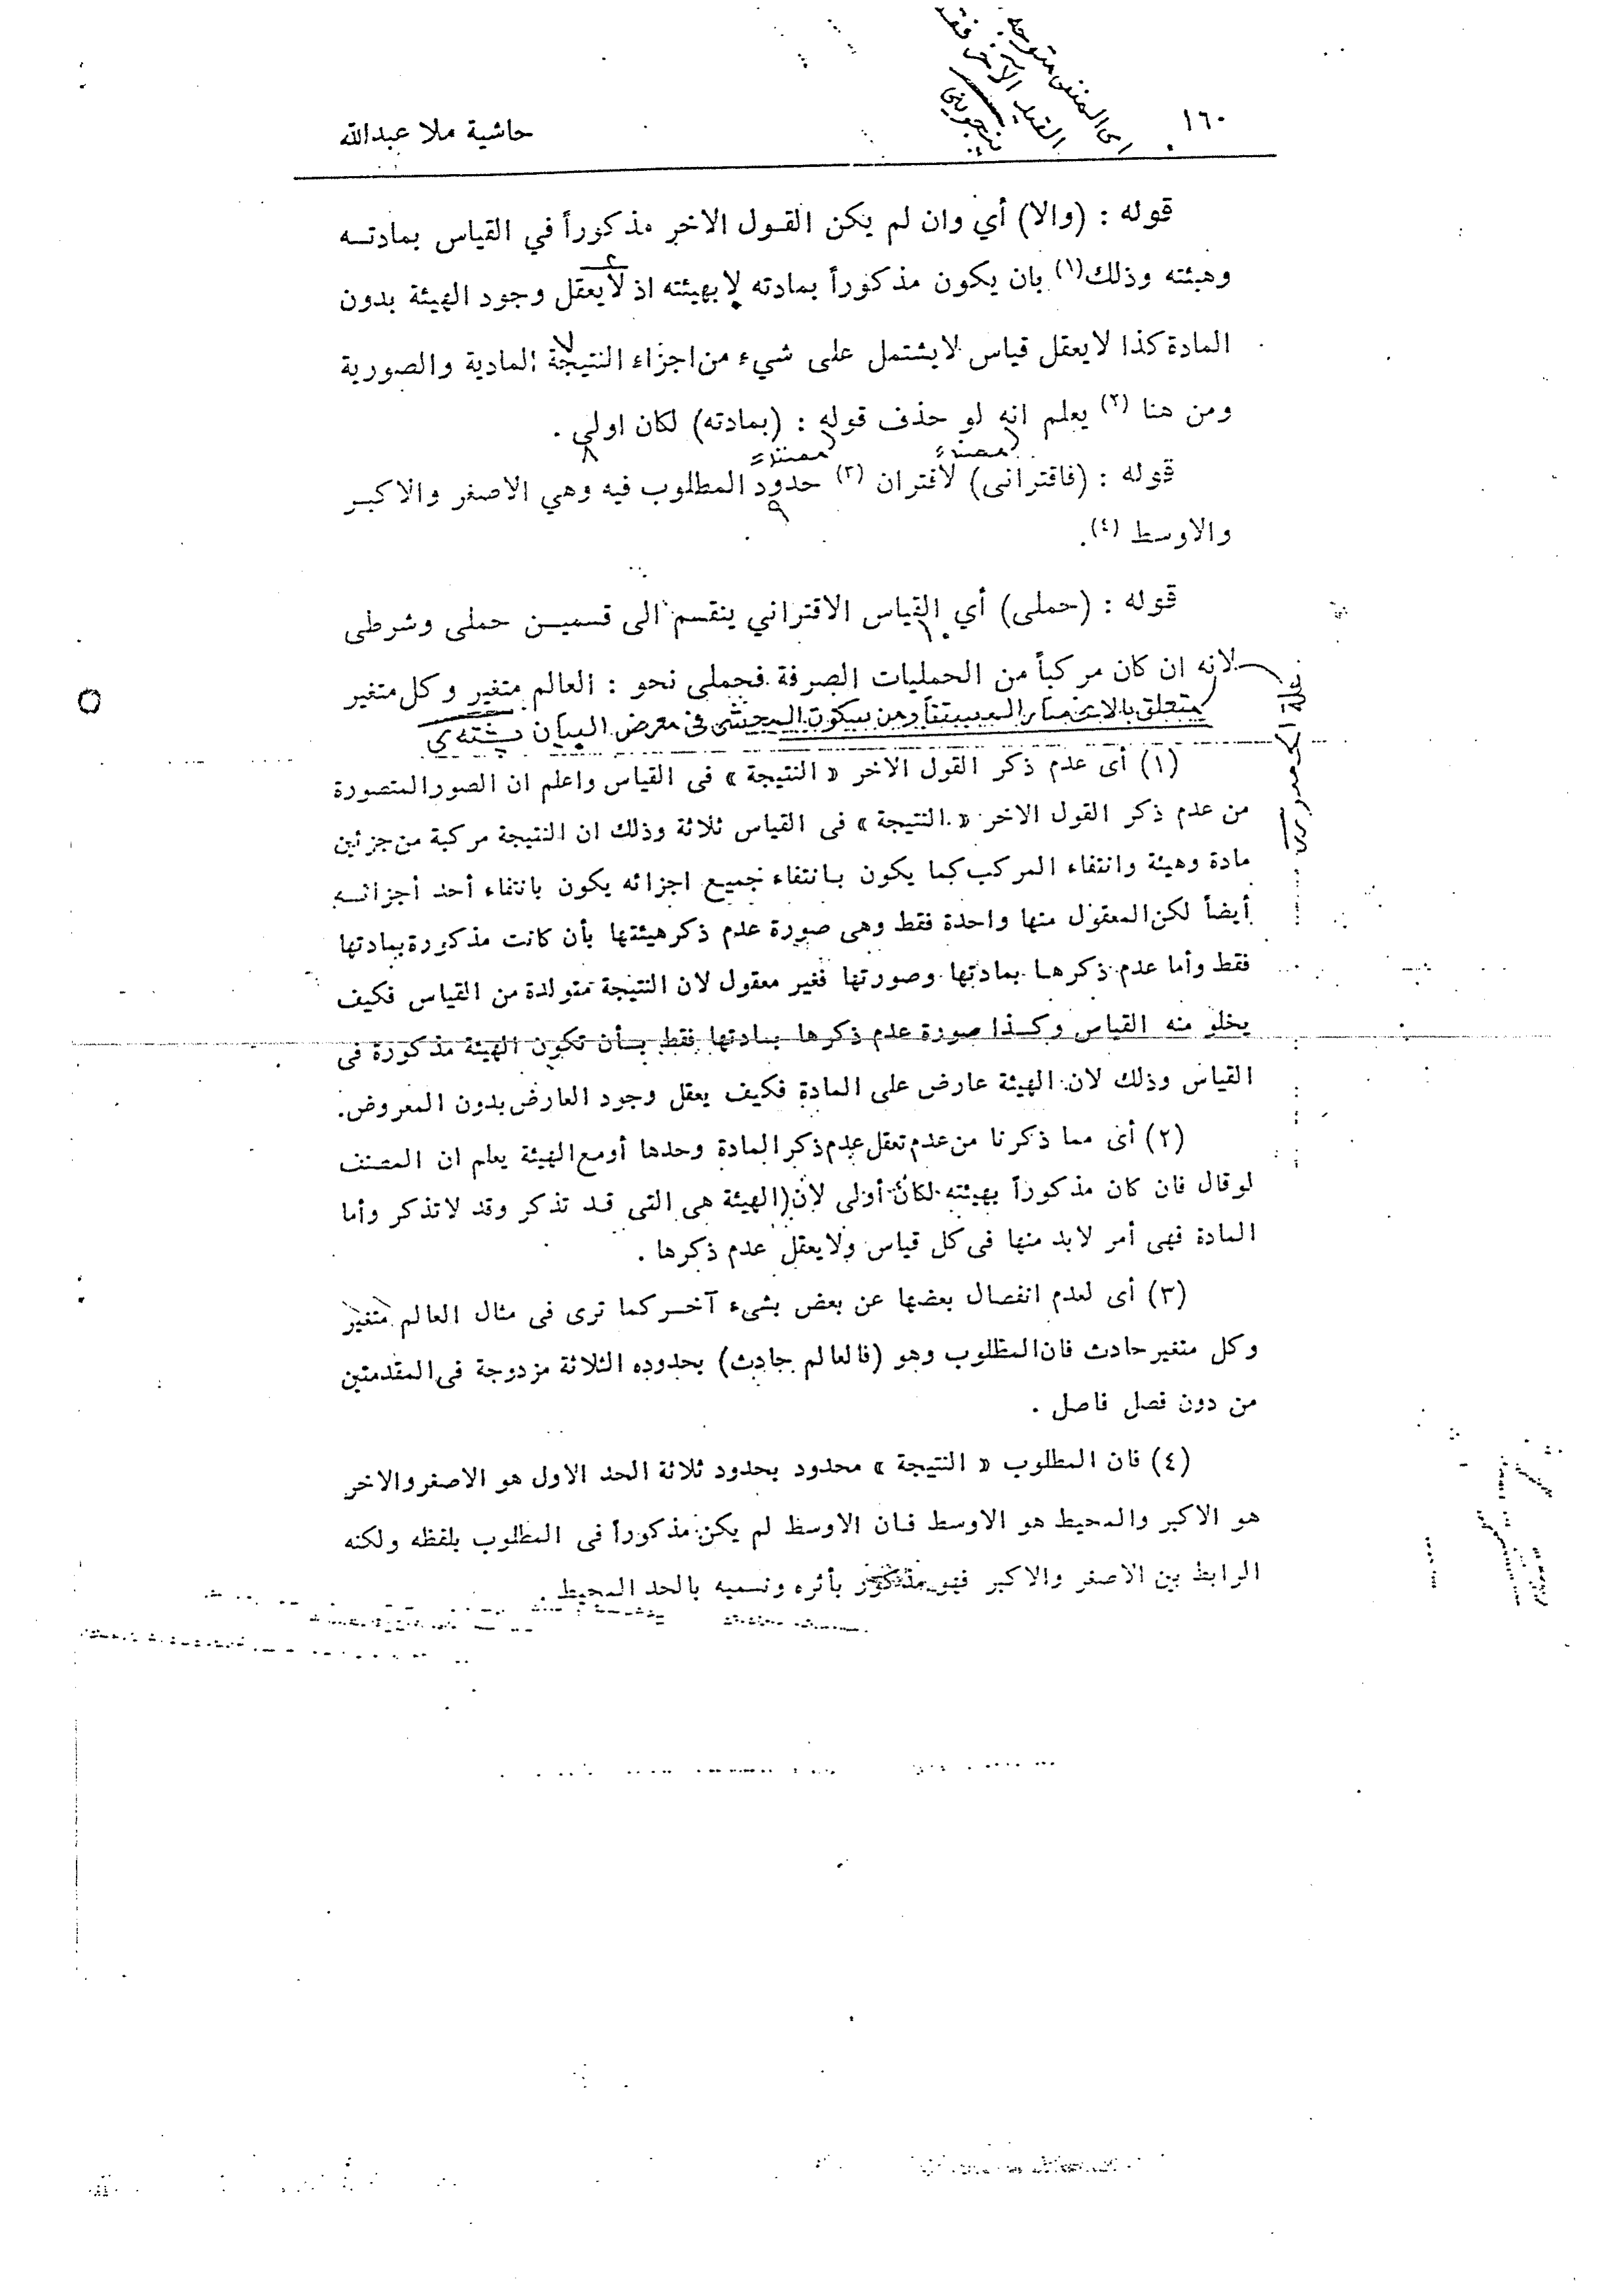 ١٦٠
حاشية ملا عبدالله
اى المنفى متوجه
القيد الاخر فقط
پنجوينى
قوله : (والا) أي وان لم يكن القول الاخر مذكوراً في القياس بمادته
وهيئته وذلك(١) بان يكون مذكوراً بمادته لا بهيئته اذ لا يعقل وجود الهيئة بدون
المادة كذا لا يعقل قياس لا يشتمل على شيء من اجزاء النتيجة المادية والصورية
ومن هنا (٢) يعلم انه لو حذف قوله : (بمادته) لكان اولى .
قوله : (فاقترانى) لاقتران (٣) حدود المطلوب فيه وهي الاصغر والاكبر
والاوسط (٤).
قوله : (حملى) أي القياس الاقتراني ينقسم الى قسمين حملى وشرطى
لانه ان كان مركباً من الحمليات الصرفة فحملى نحو : العالم متغير وكل متغير
(١) أى عدم ذكر القول الاخر « النتيجة » فى القياس واعلم ان الصور المتصورة
من عدم ذكر القول الاخر « النتيجة » فى القياس ثلاثة وذلك ان النتيجة مركبة من جزئين
مادة وهيئة وانتفاء المركب كما يكون بانتفاء جميع اجزائه يكون بانتفاء أحد أجزائه
أيضاً لكن المعقول منها واحدة فقط وهى صورة عدم ذكر هيئتها بأن كانت مذكورة بمادتها
فقط وأما عدم ذكرها بمادتها وصورتها فغير معقول لان النتيجة متولدة من القياس فكيف
يخلو منه القياس وكذا صورة عدم ذكرها بمادتها فقط بأن تكون الهيئة مذكورة فى
القياس وذلك لان الهيئة عارض على المادة فكيف يعقل وجود العارض بدون المعروض.
(٢) أى مما ذكرنا من عدم تعقل عدم ذكر المادة وحدها أو مع الهيئة يعلم ان المصنف
لو قال فان كان مذكوراً بهيئته لكان أولى لان الهيئة هى التى قد تذكر وقد لا تذكر وأما
المادة فهى أمر لابد منها فى كل قياس ولا يعقل عدم ذكرها .
(٣) أى لعدم انفصال بعضها عن بعض بشىء آخر كما ترى فى مثال العالم متغير
وكل متغير حادث فان المطلوب وهو (فالعالم حادث) بحدوده الثلاثة مزدوجة فى المقدمتين
من دون فصل فاصل .
(٤) فان المطلوب « النتيجة » محدود بحدود ثلاثة الحد الاول هو الاصغر والاخر
هو الاكبر والمحيط هو الاوسط فان الاوسط لم يكن مذكوراً فى المطلوب بلفظه ولكنه
الرابط بين الاصغر والاكبر فهو مذكور بأثره ونسميه بالحد المحيط .